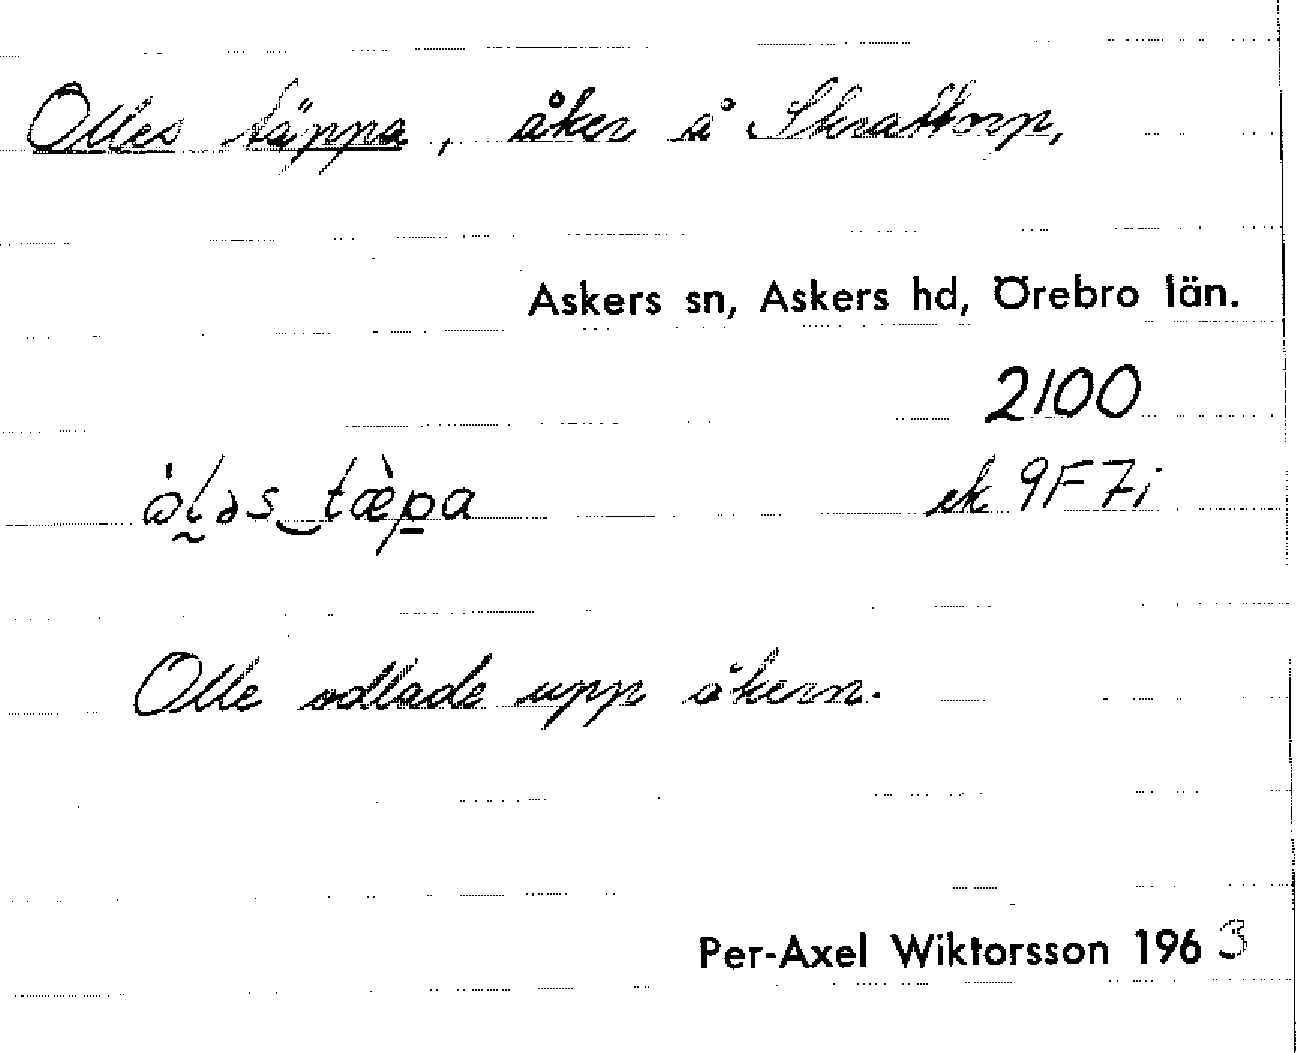 Olles täppa, åker å Skrattorp,
Askers sn, Askers hd, Örebro län.
2100
ek 9F7i
Olle odlade upp åkern.
Per-Axel Wiktorsson 1963